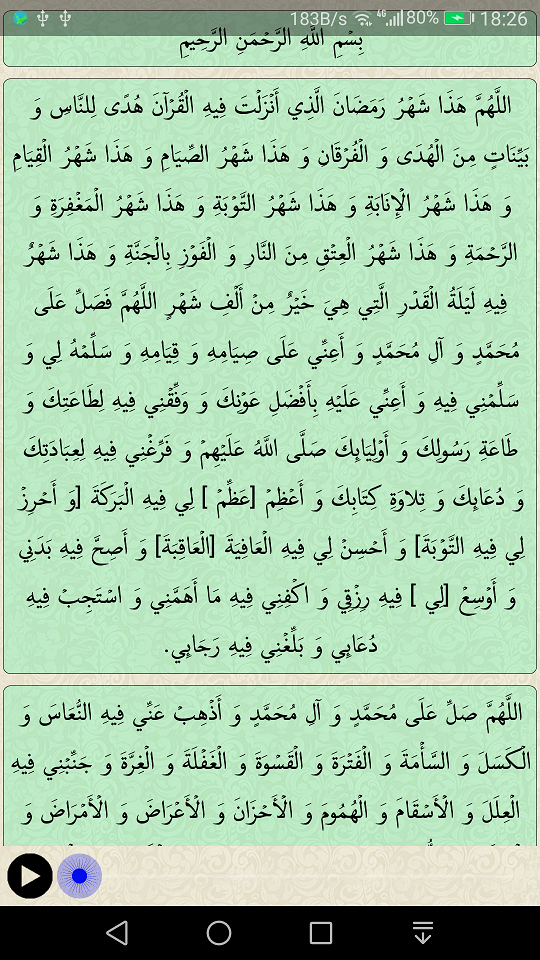 183B/s 4G 80% 18:26
بِسْمِ اللَّهِ الرَّحْمَنِ الرَّحِيمِ
اللَّهُمَّ هَذَا شَهْرُ رَمَضَانَ الَّذِي أَنْزَلْتَ فِيهِ الْقُرْآنَ هُدًى لِلنَّاسِ وَ
بَيِّنَاتٍ مِنَ الْهُدَى وَ الْفُرْقَانِ وَ هَذَا شَهْرُ الصِّيَامِ وَ هَذَا شَهْرُ الْقِيَامِ
وَ هَذَا شَهْرُ الْإِنَابَةِ وَ هَذَا شَهْرُ التَّوْبَةِ وَ هَذَا شَهْرُ الْمَغْفِرَةِ وَ
الرَّحْمَةِ وَ هَذَا شَهْرُ الْعِتْقِ مِنَ النَّارِ وَ الْفَوْزِ بِالْجَنَّةِ وَ هَذَا شَهْرٌ
فِيهِ لَيْلَةُ الْقَدْرِ الَّتِي هِيَ خَيْرٌ مِنْ أَلْفِ شَهْرٍ اللَّهُمَّ فَصَلِّ عَلَى
مُحَمَّدٍ وَ آلِ مُحَمَّدٍ وَ أَعِنِّي عَلَى صِيَامِهِ وَ قِيَامِهِ وَ سَلِّمْهُ لِي وَ
سَلِّمْنِي فِيهِ وَ أَعِنِّي عَلَيْهِ بِأَفْضَلِ عَوْنِكَ وَ وَفِّقْنِي فِيهِ لِطَاعَتِكَ وَ
طَاعَةِ رَسُولِكَ وَ أَوْلِيَائِكَ صَلَّى اللَّهُ عَلَيْهِمْ وَ فَرِّغْنِي فِيهِ لِعِبَادَتِكَ
وَ دُعَائِكَ وَ تِلاوَةِ كِتَابِكَ وَ أَعْظِمْ [عَظِّمْ ] لِي فِيهِ الْبَرَكَةَ [وَ أَحْرِزْ
لِي فِيهِ التَّوْبَةَ] وَ أَحْسِنْ لِي فِيهِ الْعَافِيَةَ [الْعَاقِبَةَ] وَ أَصِحَّ فِيهِ بَدَنِي
وَ أَوْسِعْ [لِي ] فِيهِ رِزْقِي وَ اكْفِنِي فِيهِ مَا أَهَمَّنِي وَ اسْتَجِبْ فِيهِ
دُعَائِي وَ بَلِّغْنِي فِيهِ رَجَائِي.
اللَّهُمَّ صَلِّ عَلَى مُحَمَّدٍ وَ آلِ مُحَمَّدٍ وَ أَذْهِبْ عَنِّي فِيهِ النُّعَاسَ وَ
الْكَسَلَ وَ السَّأْمَةَ وَ الْفَتْرَةَ وَ الْقَسْوَةَ وَ الْغَفْلَةَ وَ الْغِرَّةَ وَ جَنِّبْنِي فِيهِ
الْعِلَلَ وَ الْأَسْقَامَ وَ الْهُمُومَ وَ الْأَحْزَانَ وَ الْأَعْرَاضَ وَ الْأَمْرَاضَ وَ